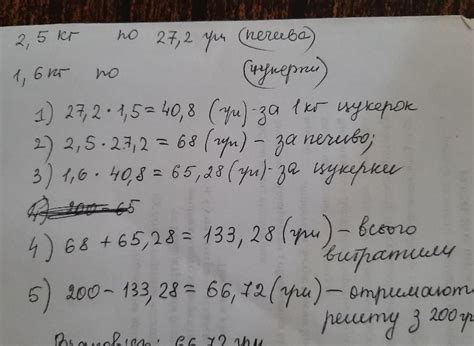 2,5 кг по 27,2 грн (печива)
1,6 кг по (цукерки)
1) 27,2 · 1,5 = 40,8 (грн) - за 1 кг цукерок
2) 2,5 · 27,2 = 68 (грн) – за печиво;
3) 1,6 · 40,8 = 65,28 (грн) - за цукерки
4) 200 - 65
4) 68 + 65,28 = 133,28 (грн) – всього
витратили
5) 200 - 133,28 = 66,72 (грн) – отримают
решту з 200 гр
66,72 грн